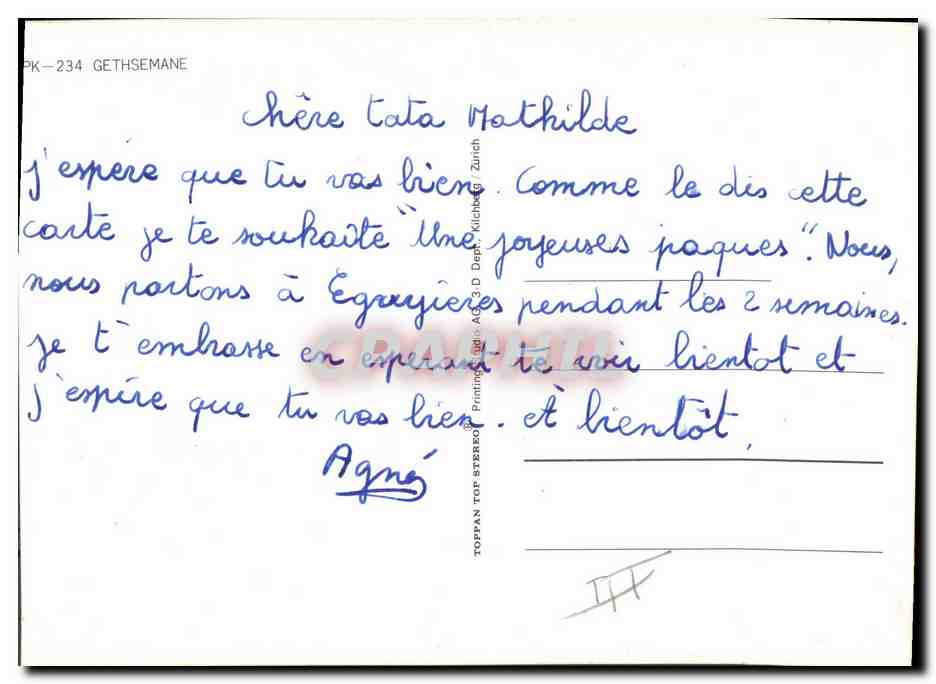 PK-234 GETHSEMANE
Chère tata Mathilde
j'espère que tu vas bien. Comme le dis cette
carte je te souhaite "Une joyeuses paques". Nous,
nous partons à Eguyières pendant les 2 semaines.
je t'embrasse en esperant te voir bientot et
j'espère que tu vas bien. et À bientôt,
Agnès
TOPPAN TOP STEREO® Printing: Studio AG, 3-D Dept., Kilchberg / Zürich